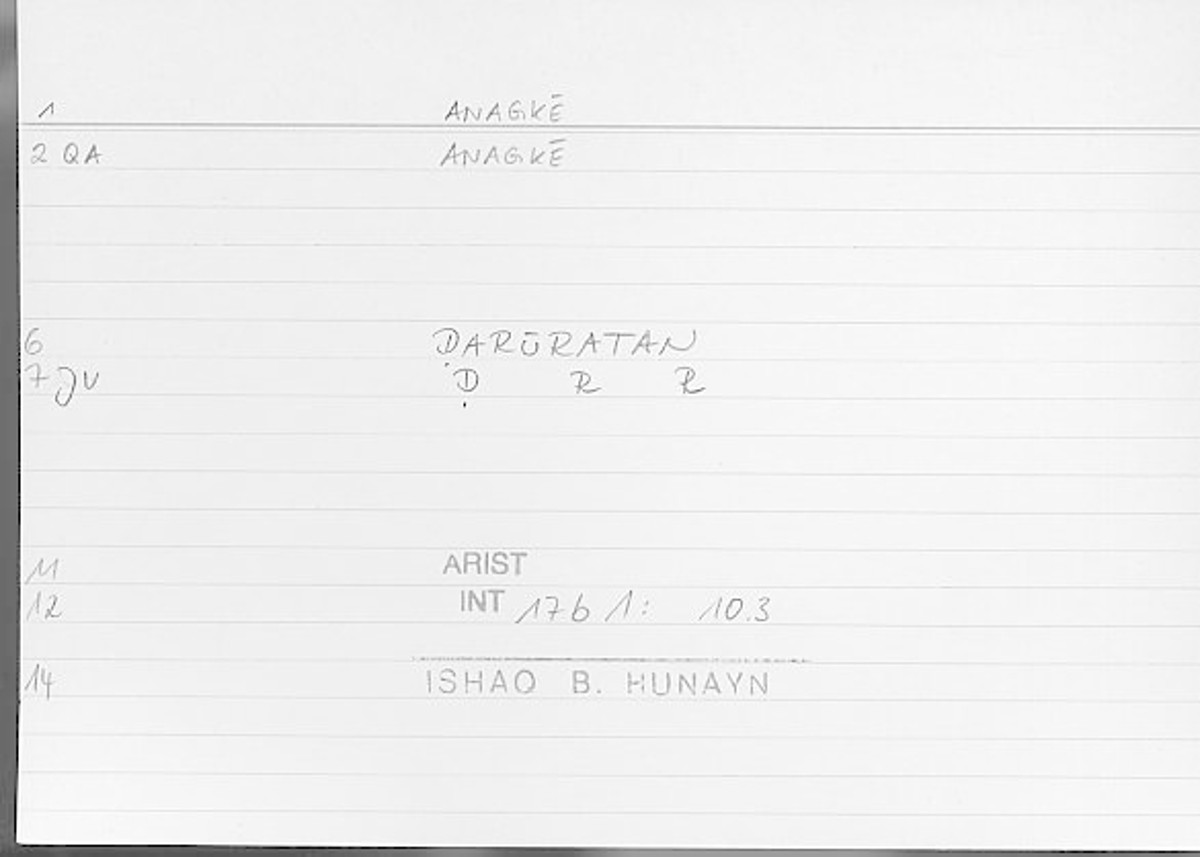 1 ANAGKĒ
2 QA ANAGKĒ
6 ḌARŪRATAN
7 JV Ḍ R R
11 ARIST
12 INT 17b 1: 10.3
14 ISHAQ B. HUNAYN